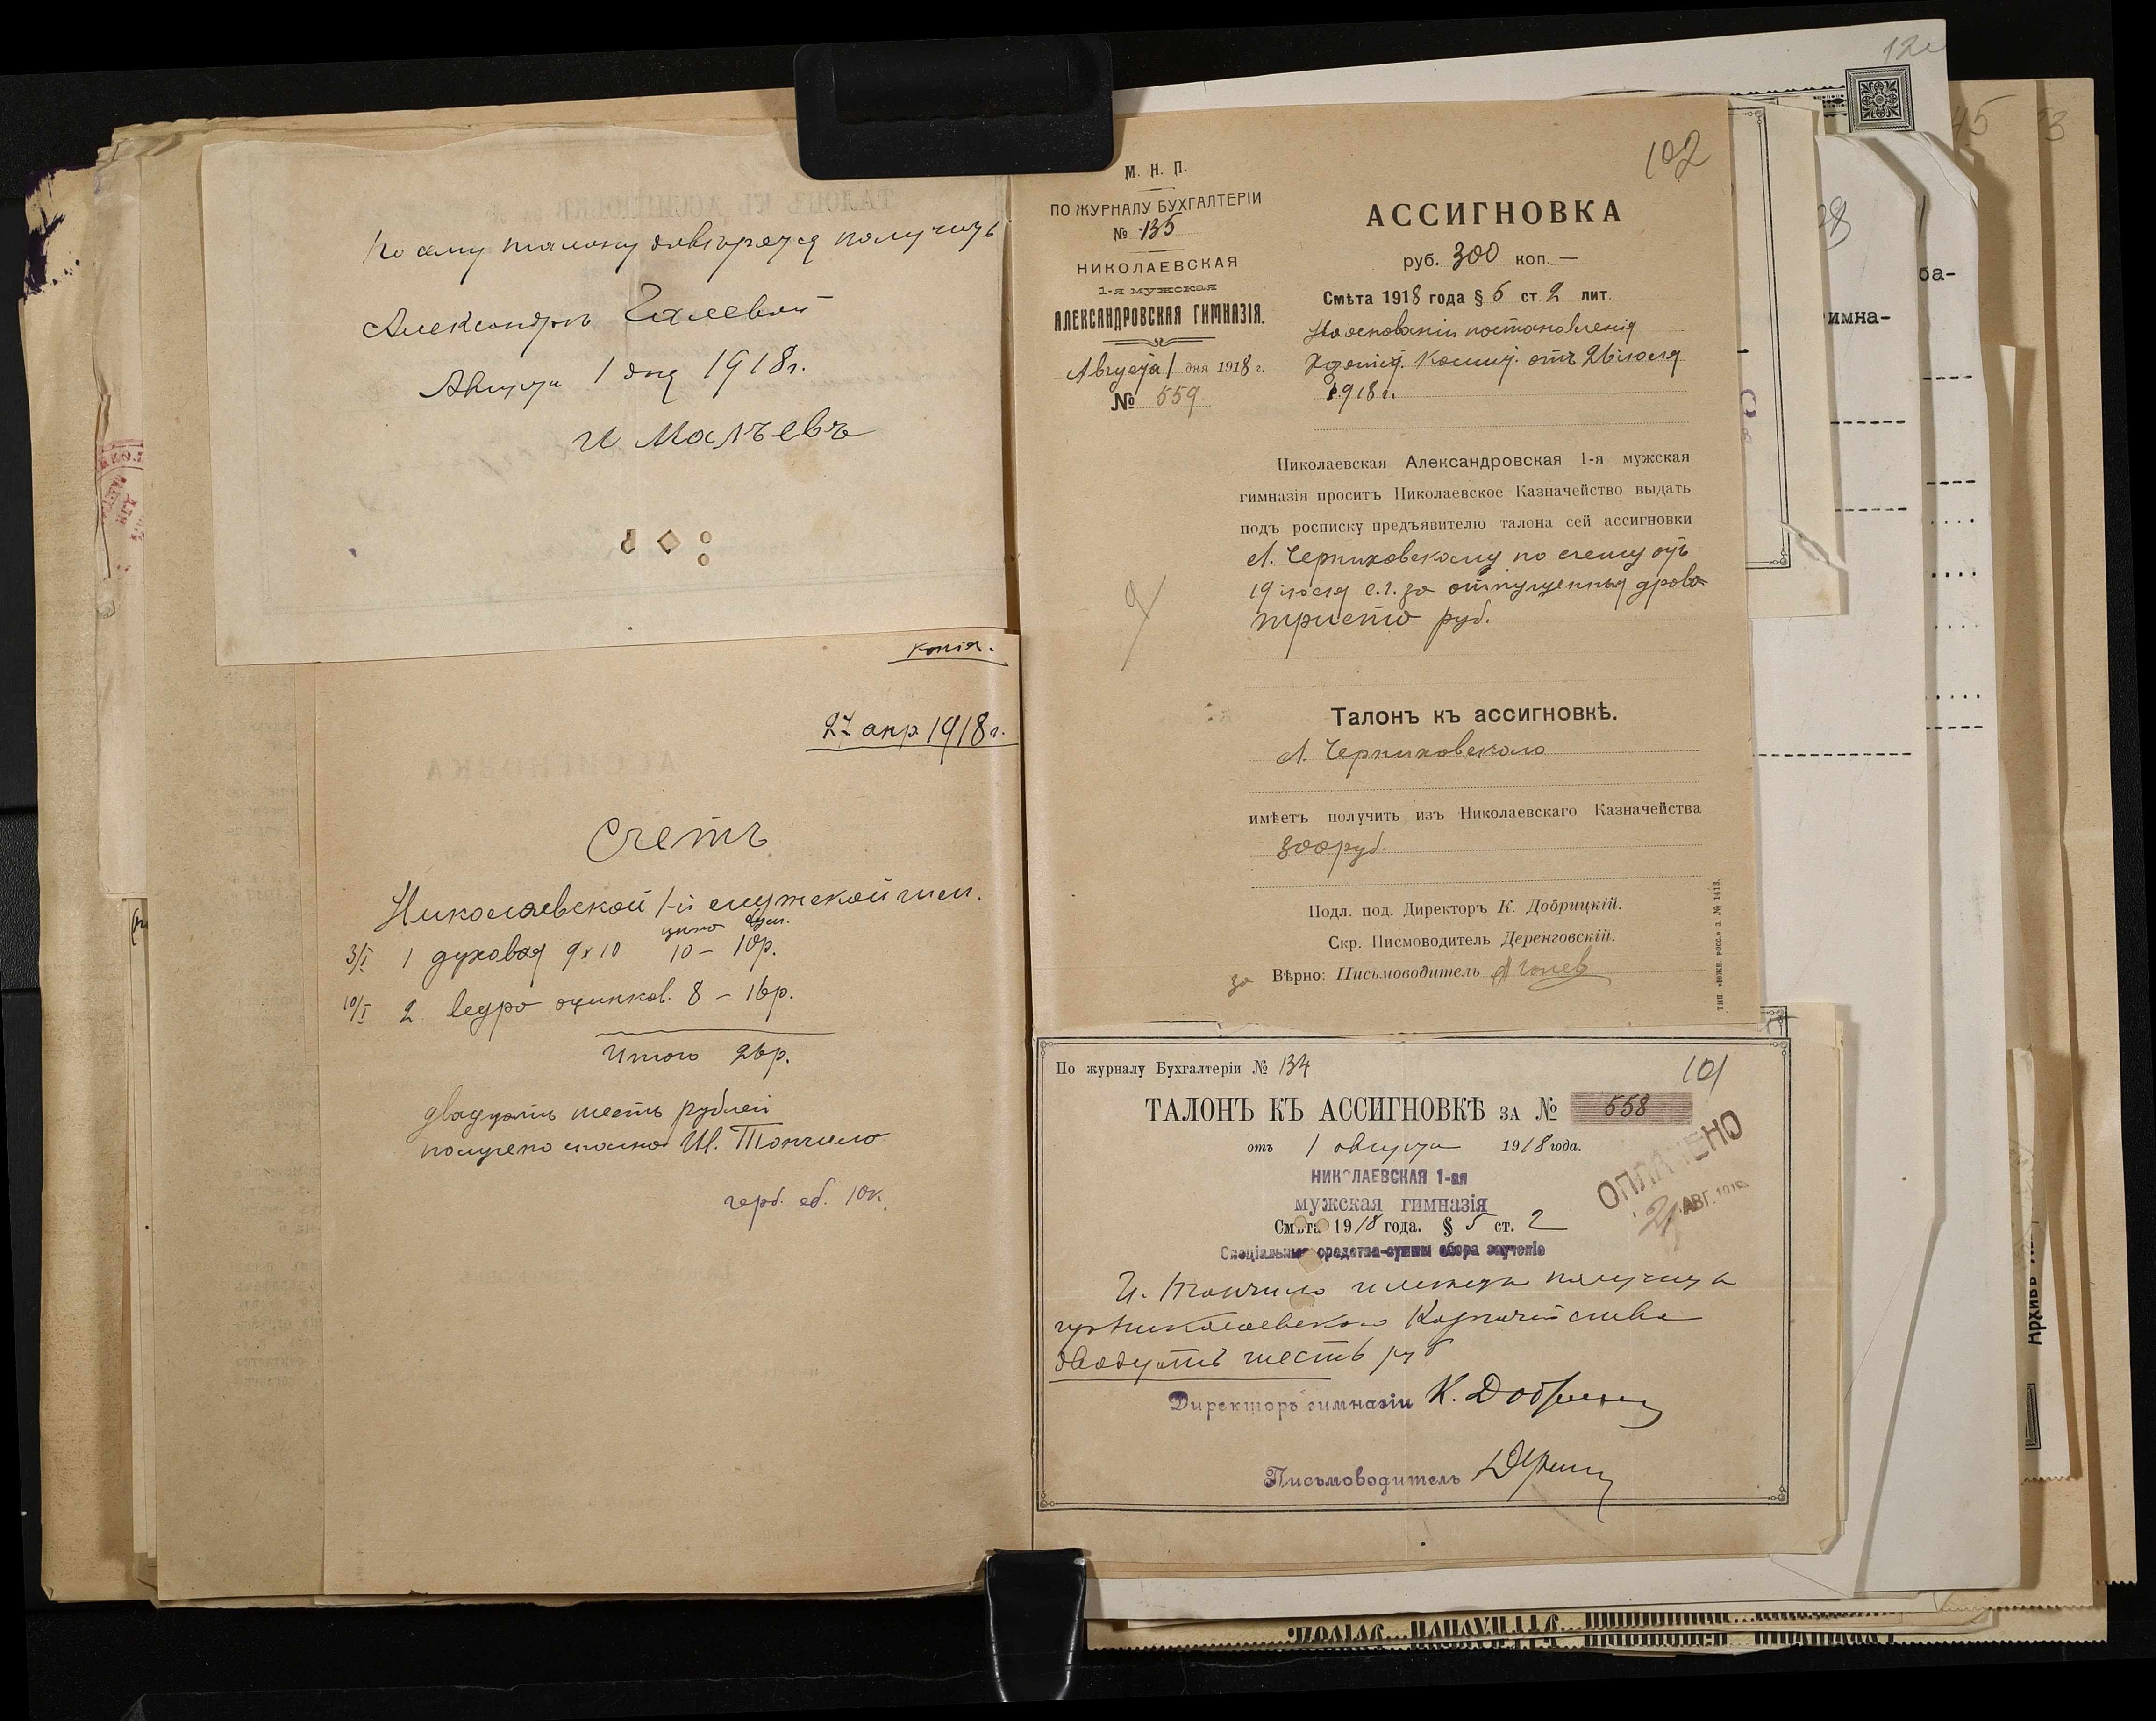 По сему талону довѣряется получить
Александрѣ
Августа 1 дня 1918 г.
копія.
27 апр 1918 г.
Счетъ
Николаевской 1-й мужской гим.
цѣна
3/I 1 духовая 9 х 10 10 – 10р.
10/I 2 ведро оцинков. 8 – 16р.
Итого 26р.
двадцать шесть рублей
получено сполна
герб. сб. 10к.
102
М. Н. П.
ПО ЖУРНАЛУ БУХГАЛТЕРІИ
№ 135
НИКОЛАЕВСКАЯ
1-я мужская
АЛЕКСАНДРОВСКАЯ ГИМНАЗІЯ.
Августа 1 дня 1918 г.
№ 559
АССИГНОВКА
руб. 300 коп. —
Смѣта 1918 года § 5 ст. 2 лит.
На основаніи постановленія
Хозяйст. Комит. отъ 26 іюля
1918 г.
Николаевская Александровская 1-я мужская
гимназія проситъ Николаевское Казначейство выдать
подъ росписку предъявителю талона сей ассигновки
Л. Черниховскому по счету отъ
19 іюля с.г. за отпущенныя дрова
триста руб.
Талонъ къ ассигновкѣ.
Л. Черниховскаго
имѣетъ получить изъ Николаевскаго Казначейства
300 руб.
Подл. под. Директоръ К. Добрицкій.
Скр. Писмоводитель Деренговскій.
за Вѣрно: Письмоводитель
ТИП. «ЮЖН. РОСС.» З. № 1413.
По журналу Бухгалтеріи № 134
101
ТАЛОНЪ КЪ АССИГНОВКѢ ЗА № 558
отъ 1 августа 1918 года.
ОПЛАЧЕНО
2 АВГ. 1918
НИКОЛАЕВСКАЯ 1-ая
мужская гимназія
Смѣта 1918 года. § 5 ст. 2
Спеціальныя средства-суммы сбора за ученіе
имѣетъ получить
изъ Николаевскаго Казначейства
двадцать шесть руб
Директоръ гимназіи К. Добрицкій
Письмоводитель
ба-
имна-